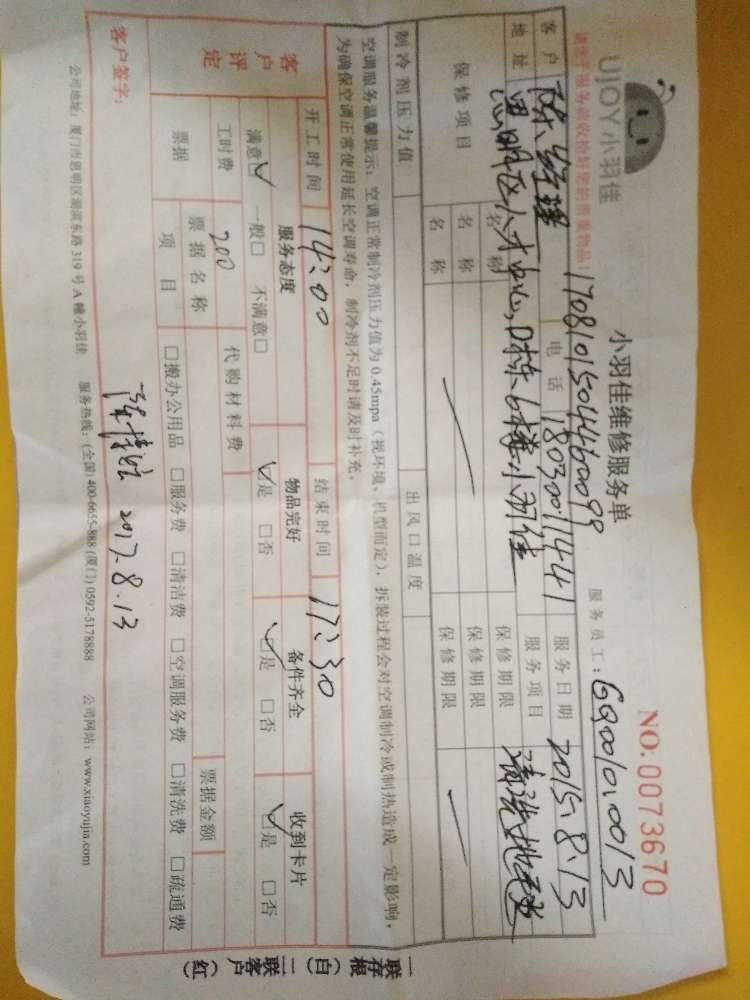 UJOY小羽佳
小羽佳维修服务单
NO.0073670
1708101504460099
服务员工：GQ0010.0013
客户 陈经理 电话 18030071441 服务日期 2015.8.13
地址 思明区人才中心,D栋、6楼小羽佳 服务项目 清洗地毯
保修项目 名称 保修期限
名称 保修期限
名称 保修期限
制冷剂压力值 出风口温度
空调服务温馨提示：空调正常制冷剂压力值为 0.45mpa（视环境、机型而定），拆装过程会对空调制冷或制热造成一定影响，
为确保空调正常使用延长空调寿命，制冷剂不足时请及时补充。
开工时间 14:00 结束时间 17:30
客户评定 服务态度 物品完好 备件齐全 收到卡片
满意☑ 一般□ 不满意□ ☑是 □否 ☑是 □否 ☑是 □否
工时费 200 代购材料费
票据 票据名称 票据金额
项目 □搬办公用品 □服务费 □清洁费 □空调服务费 □清洗费 □疏通费
客户签字： 2017.8.13
公司地址：厦门市思明区湖滨东路 319 号 A 幢小羽佳 服务热线：(全国) 400-6655-888 (厦门) 0592-5178888 公司网站：www.xiaoyujia.com
一联存根（白）二联客户（红）